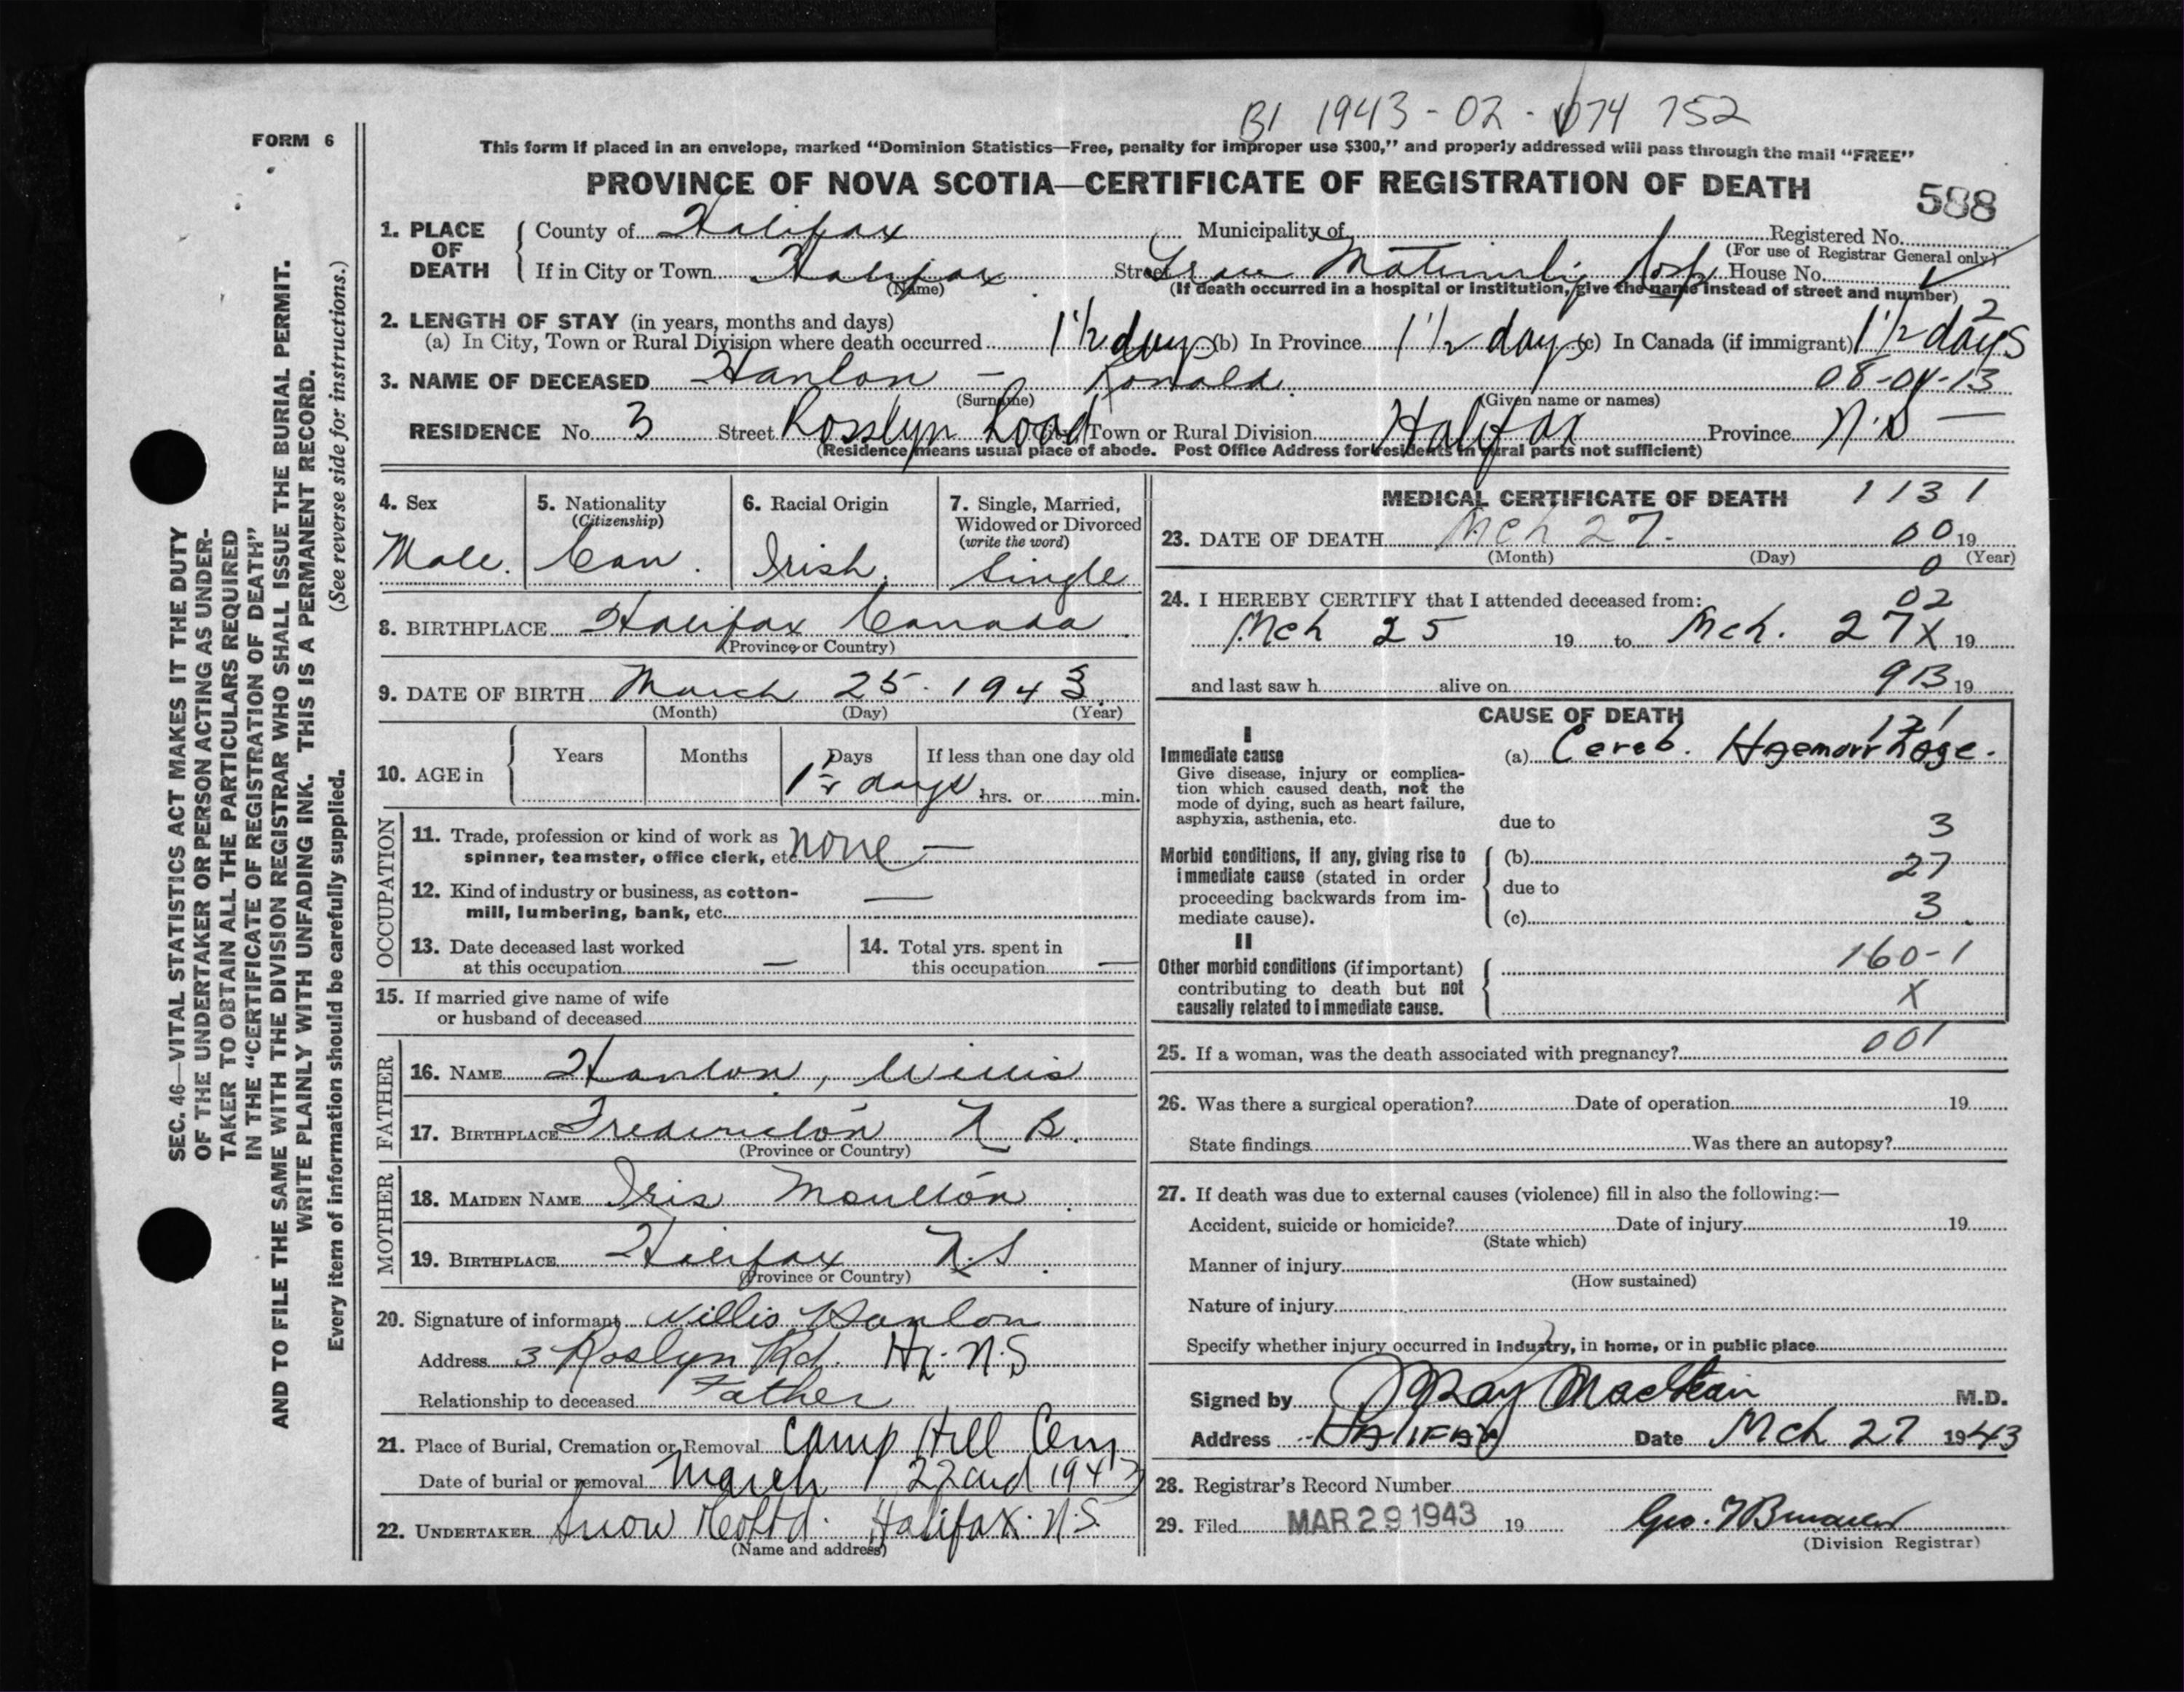 B1 1943-02-074 752
FORM 6
This form if placed in an envelope, marked “Dominion Statistics—Free, penalty for improper use $300,” and properly addressed will pass through the mail “FREE”
PROVINCE OF NOVA SCOTIA—CERTIFICATE OF REGISTRATION OF DEATH
588
1. PLACE OF DEATH
County of Halifax Municipality of Registered No.
(For use of Registrar General only)
If in City or Town Halifax Street Grace Maternity Hosp House No.
(Name)
(If death occurred in a hospital or institution, give the name instead of street and number)
2
2. LENGTH OF STAY (in years, months and days)
(a) In City, Town or Rural Division where death occurred 1 1/2 days (b) In Province 1 1/2 days (c) In Canada (if immigrant) 1 1/2 days
3. NAME OF DECEASED Hanlon - Ronald. 08-04-13
(Surname) (Given name or names)
RESIDENCE No. 3 Street Rosslyn Road City, Town or Rural Division Halifax Province N.S —
(Residence means usual place of abode. Post Office Address for residents in rural parts not sufficient)
4. Sex
Male.
5. Nationality
(Citizenship)
Can.
6. Racial Origin
Irish.
7. Single, Married,
Widowed or Divorced
(write the word)
Single
8. BIRTHPLACE Halifax Canada
(Province or Country)
9. DATE OF BIRTH March 25. 1943
(Month) (Day) (Year)
10. AGE in
Years Months Days If less than one day old
1 1/2 days hrs. or min.
OCCUPATION
11. Trade, profession or kind of work as
spinner, teamster, office clerk, etc. none —
12. Kind of industry or business, as cotton-
mill, lumbering, bank, etc. —
13. Date deceased last worked
at this occupation —
14. Total yrs. spent in
this occupation —
15. If married give name of wife
or husband of deceased
FATHER
16. NAME Hanlon, Willis
17. BIRTHPLACE Fredericton N B.
(Province or Country)
MOTHER
18. MAIDEN NAME Iris Moulton
19. BIRTHPLACE Halifax N.S.
(Province or Country)
20. Signature of informant Willis Hanlon
Address 3 Roslyn Rd. Hx. N.S
Relationship to deceased Father
21. Place of Burial, Cremation or Removal Camp Hill Cem
Date of burial or removal March 22nd 1943
22. UNDERTAKER Snow & Co Ltd. Halifax. N.S.
(Name and address)
MEDICAL CERTIFICATE OF DEATH 1131
23. DATE OF DEATH Mch 27. 00 19
(Month) (Day) (Year)
0
24. I HEREBY CERTIFY that I attended deceased from: 02
Mch 25 19 to Mch. 27 X 19
and last saw h alive on 913 19
CAUSE OF DEATH
121
I
Immediate cause
Give disease, injury or complica-
tion which caused death, not the
mode of dying, such as heart failure,
asphyxia, asthenia, etc.
(a) Cereb. Haemorrhage.
due to 3
Morbid conditions, if any, giving rise to
immediate cause (stated in order
proceeding backwards from im-
mediate cause).
(b) 27
due to
(c) 3
II
Other morbid conditions (if important)
contributing to death but not
causally related to immediate cause.
160-1
X
25. If a woman, was the death associated with pregnancy? 001
26. Was there a surgical operation? Date of operation 19
State findings Was there an autopsy?
27. If death was due to external causes (violence) fill in also the following:—
Accident, suicide or homicide? Date of injury 19
(State which)
Manner of injury
(How sustained)
Nature of injury
Specify whether injury occurred in industry, in home, or in public place
Signed by M.D.
Address HALIFAX Date Mch 27 1943
28. Registrar's Record Number
29. Filed MAR 29 1943 19
(Division Registrar)
SEC. 46—VITAL STATISTICS ACT MAKES IT THE DUTY
OF THE UNDERTAKER OR PERSON ACTING AS UNDER-
TAKER TO OBTAIN ALL THE PARTICULARS REQUIRED
IN THE “CERTIFICATE OF REGISTRATION OF DEATH”
AND TO FILE THE SAME WITH THE DIVISION REGISTRAR WHO SHALL ISSUE THE BURIAL PERMIT.
WRITE PLAINLY WITH UNFADING INK. THIS IS A PERMANENT RECORD.
Every item of information should be carefully supplied. (See reverse side for instructions.)